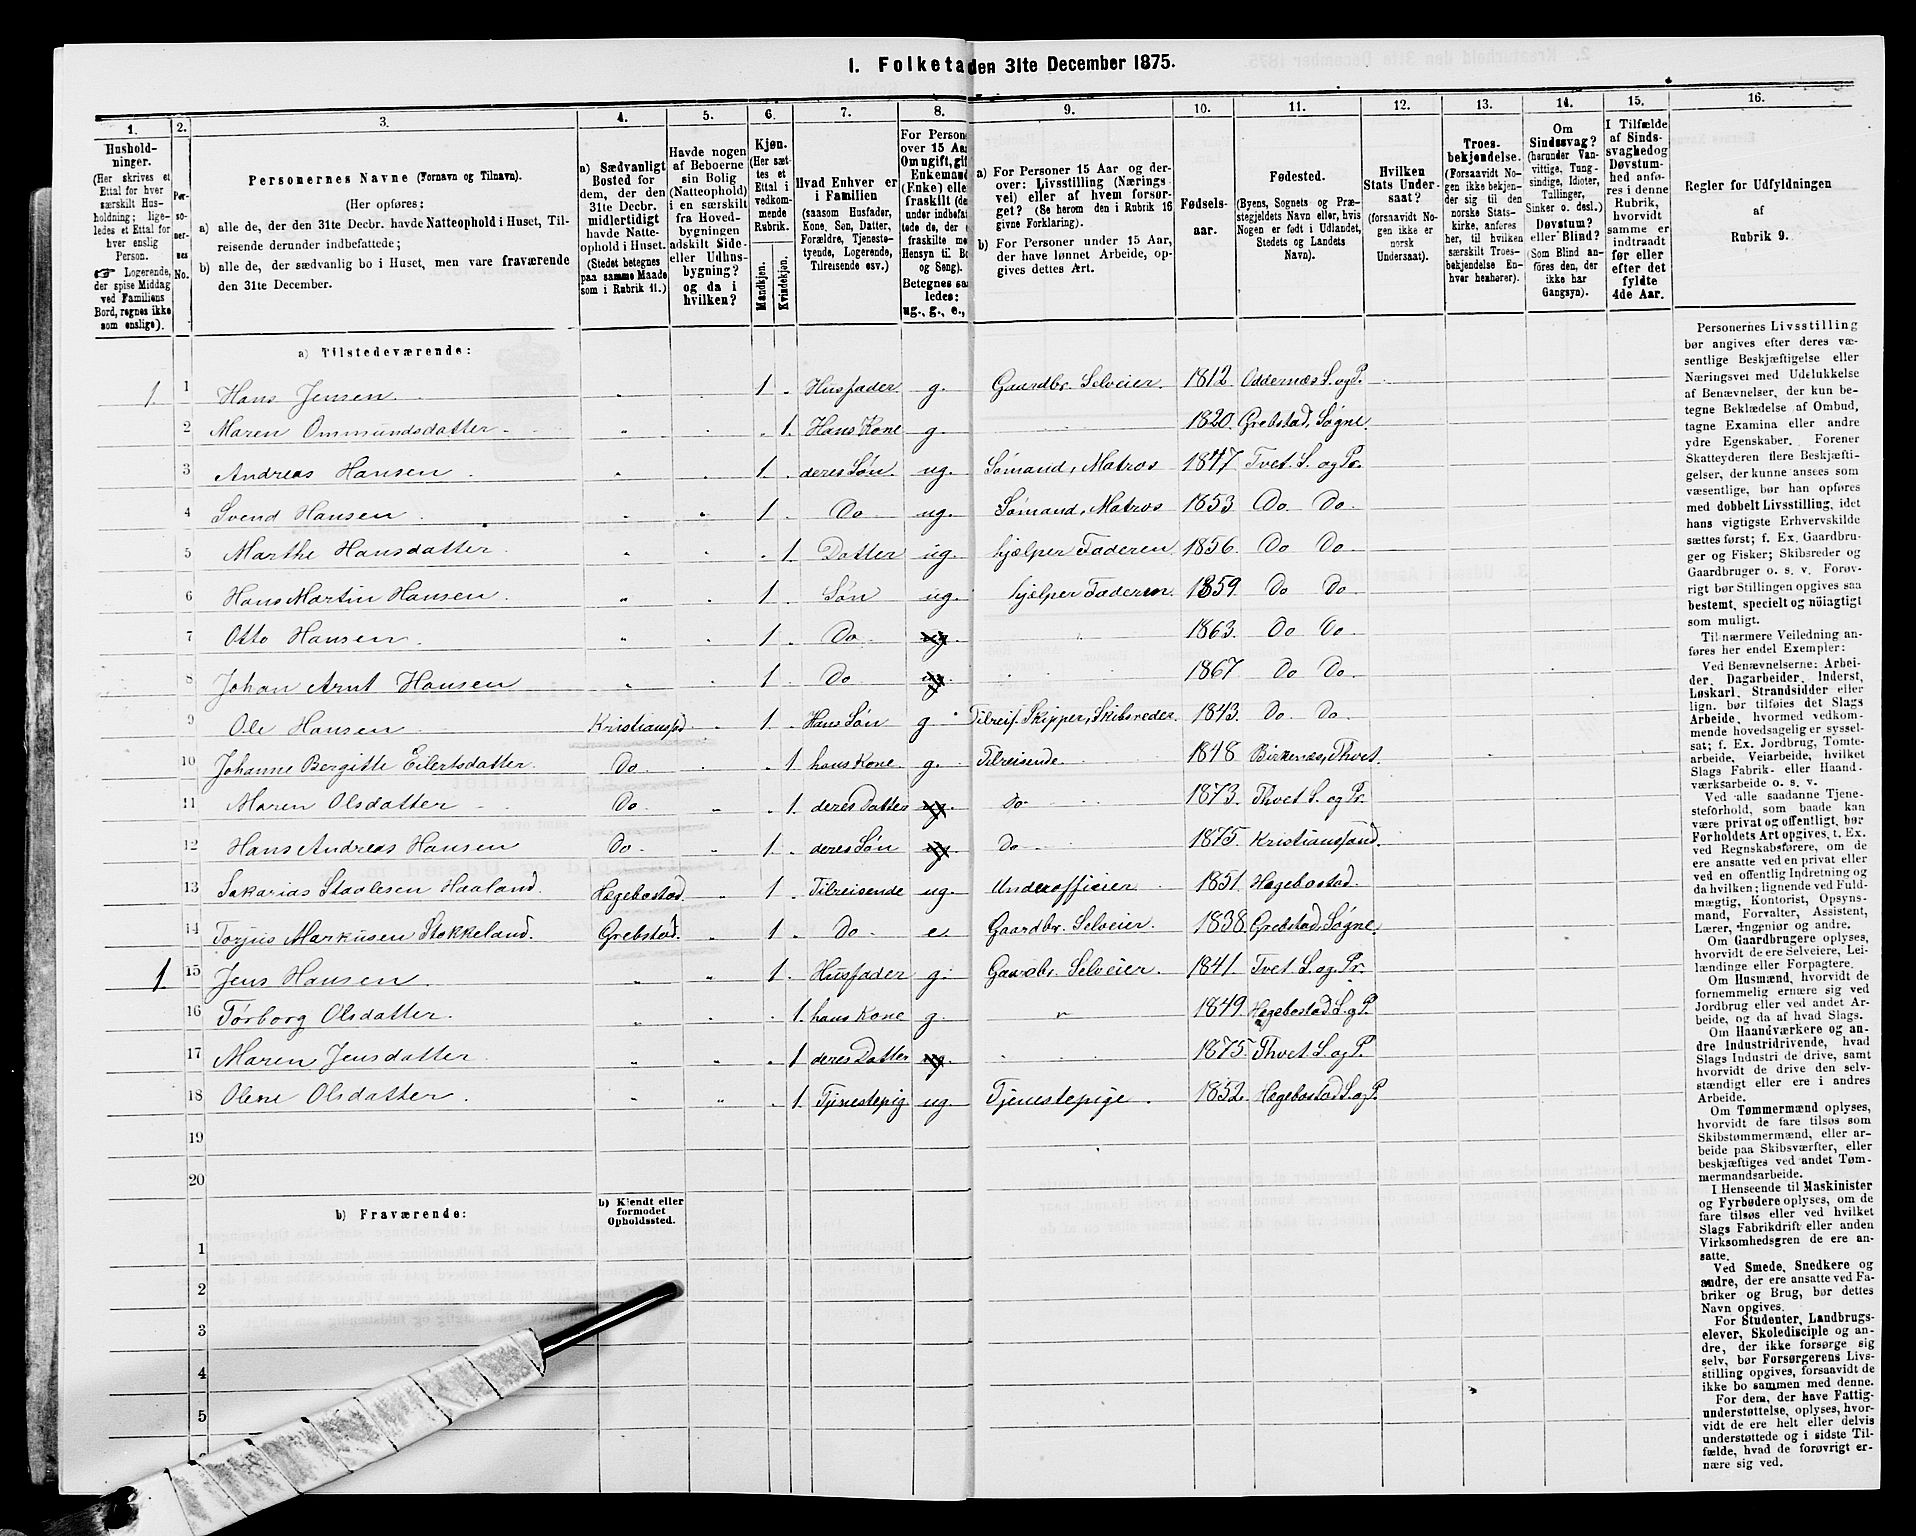 1. Folketa den 31te December 1875.
1. 2. 3. 4. 5. 6. 7. 8. 9. 10. 11. 12. 13. 14. 15. 16.
Hushold-
ninger.
(Her skrives et
Ettal for hver
særskilt Hus-
holdning; lige-
ledes et Ettal
for hver
enslig
Person.
☞ Logerende,
der spise Middag
ved Familiens
Bord, regnes ikke
som enslige).
Per-
so-
ner-
nes
No.
Personernes Navne (Fornavn og Tilnavn).
(Her opføres:
a) alle de, der den 31te Decbr. havde Natteophold i Huset, Til-
reisende derunder indbefattede;
b) alle de, der sædvanlig bo i Huset, men vare fraværende
den 31te December.
a) Sædvanligt
Bosted for
dem, der den
31te Decbr.
midlertidigt
havde Natte-
ophold i Huset.
(Stedet betegnes
paa samme Maade
som i Rubrik 11.)
Havde nogen
af Beboerne
sin Bolig
(Natteophold)
i en særskilt
fra Hoved-
bygningen
adskilt Side-
eller Udhus-
bygning?
og da i
hvilken?
Kjøn.
(Her sæt-
tes et
Ettal i
vedkom-
mende
Rubrik.
Mandkjøn.
Kvindekjøn.
Hvad Enhver er
i Familien
(saasom Husfader,
Kone, Søn, Datter,
Forældre, Tjeneste-
tyende, Logerende,
Tilreisende osv.)
For Person
over 15 Aar
Om ugift, gif
Enkemand
(Enke) elle
fraskilt (de
under indbefat
tede de, der e
fraskilte me
Hensyn til Bo
og Seng).
Betegnes saa
ledes:
ug., g., e.,
a) For Personer 15 Aar og der-
over: Livsstilling (Nærings
vei) eller af hvem forsør-
get? (Se herom den i Rubrik 16
givne Forklaring).
b) For Personer under 15 Aar,
der have lønnet Arbeide, op-
gives dettes Art.
Fødsels-
aar.
Fødested.
(Byens, Sognets og Præ-
stegjeldets Navn eller, hvis
Nogen er født i Udlandet,
Stedets og Landets
Navn).
Hvilken
Stats Under-
saat?
(forsaavidt No-
gen ikke er
norsk
Undersaat).
Troes-
bekjendelse.
(Forsaavidt No-
gen ikke bekjen-
der sig til den
norske Stats-
kirke, anføres
her, til hvilken
særskilt Troes-
bekjendelse En-
hver henhører).
Om
Sindssvag?
(herunder Van-
vittige, Tung-
sindige, Idioter,
Tullinger,
Sinker o. desl.)
Døvstum?
eller Blind?
(Som Blind an-
føres den, der
ikke har
Gangsyn).
I Tilfælde
af Sinds-
svaghed og
Døvstum-
hed anfø-
res i denne
Rubrik,
hvorvidt
samme er
indtraadt
før eller
efter det
fyldte
4de Aar.
Regler for Udfyldningen
af
Rubrik 9.
a) Tilstedeværende:
1 1 Hans Jensen 1 Husfader g. Gaardbr. Selveier. 1812. Oddernæs S. og P.
2 Maren Ommundsdatter 1. Hans Kone g. 1820. Grebstad, Søgne
3 Andreas Hansen 1 deres Søn ug. Sømand, Matros 1847 Tvet. S. og Pr.
4 Svend Hansen 1 Do ug. Sømand, Matros 1853 Do Do
5 Marthe Hansdatter 1. Datter ug. hjælper Faderen 1856. Do Do
6 Hans Martin Hansen 1. Søn ug. hjælper Faderen 1859. Do Do
7 Otto Hansen 1 Do ug. 1863. Do Do
8 Johan Arnt Hansen 1 Do ug 1867 Do Do
9 Ole Hansen Kristianssd 1. Hans Søn g Tilreis. Skipper, Skibsreder. 1843. Do Do
10 Johanne Bergitte Eilertsdatter Do 1 hans Kone g. Tilreisende. 1848 Birkenæs, Thvet
11 Maren Olsdatter Do 1. deres Datter ug. Do 1873. Thvet S. og Pr.
12 Hans Andreas Hansen Do 1. deres Søn ug. Do 1875. Kristianssand.
13 Sakarias Staalesen Haaland. Hægebostad 1 Tilreisende ug. Underofficier 1851. Hægebostad.
14 Torjus Markusen Stokkeland. Grebstad. 1 Do e Gaardbr. Selveier. 1838. Grebstad, Søgne.
1 15 Jens Hansen 1 Husfader g. Gaardbr. Selveier. 1841. Tvet S. og. Pr.
16 Tørborg Olsdatter. 1. hans Kone g. " 1849. Hægebostad S. og P.
17 Maren Jensdatter 1 deres Datter ug. 1875. Thvet S. og P.
18 Olene Olsdatter 1. Tjenestepig ug. Tjenestepige. 1852. Hægebostad S. og P.
19
20
b) Fraværende:
b) Kjendt eller
formodet
Opholdssted.
1
2
3
4
5
Personernes Livsstilling
bør angives efter deres væ-
sentlige Beskjæftigelse eller
Næringsvei med Udelukkelse
af Benævnelser, der kun be-
tegne Beklædelse af Ombud,
tagne Examina eller andre
ydre Egenskaber. Forener
Skatteyderen flere Beskjæfti-
gelser, der kunne ansees som
væsentlige, bør han opføres
med dobbelt Livsstilling, idet
hans vigtigste Erhvervskilde
sættes først; f. Ex. Gaardbru-
ger og Fisker; Skibsreder og
Gaardbruger o. s. v. Forøv-
rigt bør Stillingen opgives saa
bestemt, specielt og nöiagtigt
som muligt.
Til nærmere Veiledning an-
føres her endel Exempler:
Ved Benævnelserne: Arbei-
der, Dagarbeider, Inderst,
Løskarl, Strandsidder eller
lign. bør tilføies det Slags
Arbeide, hvormed vedkom-
mende hovedsagelig er syssel-
sat; f. Ex. Jordbrug, Tomte-
arbeide, Veiarbeide, hvilket
Slags Fabrik- eller Haand-
værksarbeide o. s. v.
Ved alle saadanne Tjene-
steforhold, som baade kan
være privat og offentligt, bør
Forholdets Art opgives, t. Ex.
ved Regnskabsførere, om de
ere ansatte ved en privat eller
ved en offentlig Indretning og
da hvilken; lignende ved Fuld-
mægtig, Kontorist, Opsyns-
mand, Forvalter, Assistent,
Lærer, Ingeniør og andre.
Om Gaardbrugere oplyses,
hvorvidt de ere Selveiere, Lei-
lændinge eller Forpagtere.
Om Husmænd, hvorvidt de
fornemmelig ernære sig ved
Jordbrug eller ved andet Ar-
beide, og da af hvad Slags.
Om Haandværkere og an-
dre Industridrivende, hvad
Slags Industri de drive, samt
hvorvidt de drive den selv-
stændigt eller ere i andres
Arbeide.
Om Tømmermænd oplyses,
hvorvidt de fare tilsøs som
Skibstømmermænd, eller ar-
beide paa Skibsværfter, eller
beskjæftiges ved andet Tøm-
mermandsarbeide.
I Henseende til Maskinister
og Fyrbødere oplyses, om de
fare tilsøs eller ved hvilket
Slags Fabrikdrift eller anden
Virksomhedsgren de ere an-
satte.
Ved Smede, Snedkere og
andre, der ere ansatte ved Fa-
briker og Brug, bør dettes
Navn opgives.
For Studenter, Landbrugs-
elever, Skoledisciple og an-
dre, der ikke forsørge sig
selv, bør Forsørgerens Livs-
stilling opgives, forsaavidt de
ikke bo sammen med denne.
For dem, der have Fattig-
understøttelse, oplyses, hvor-
vidt de ere helt eller delvis
understøttede og i sidste Til-
fælde, hvad de forøvrigt er-
nære sig ved.